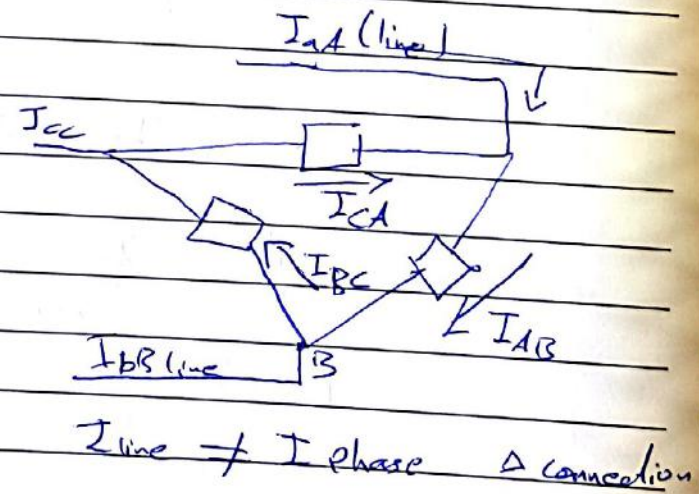 IaA (line)
Icc
ICA
IBC
IAB
IbB line
B
I line ≠ I phase Δ connection